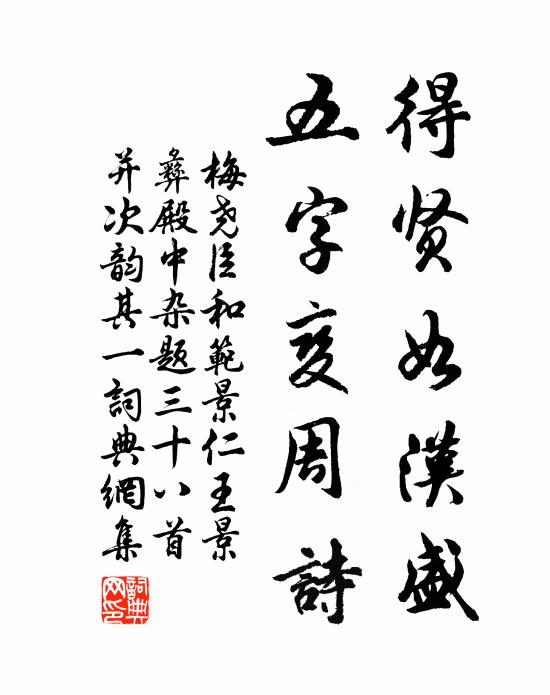 得贤如漢盛
五字变周詩
梅尧臣和範景仁王景
彝殿中杂题三十八首
并次韵其一詞典網集
詞典网印